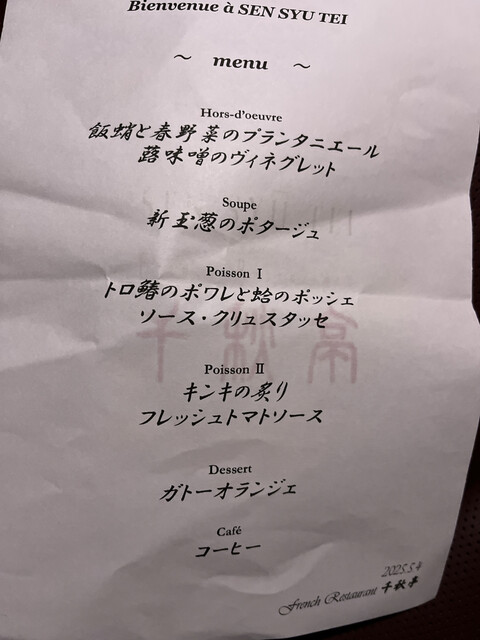 Bienvenue à SEN SYU TEI
～ menu ～
Hors-d'oeuvre
飯蛸と春野菜のプランタニエール
蕗味噌のヴィネグレット
Soupe
新玉葱のポタージュ
Poisson Ⅰ
トロ鰆のポワレと蛤のポッシェ
ソース・クリュスタッセ
Poisson Ⅱ
キンキの炙り
フレッシュトマトソース
Dessert
ガトーオランジェ
Café
コーヒー
2025.5.4
French Restaurant 千秋亭
千秋亭